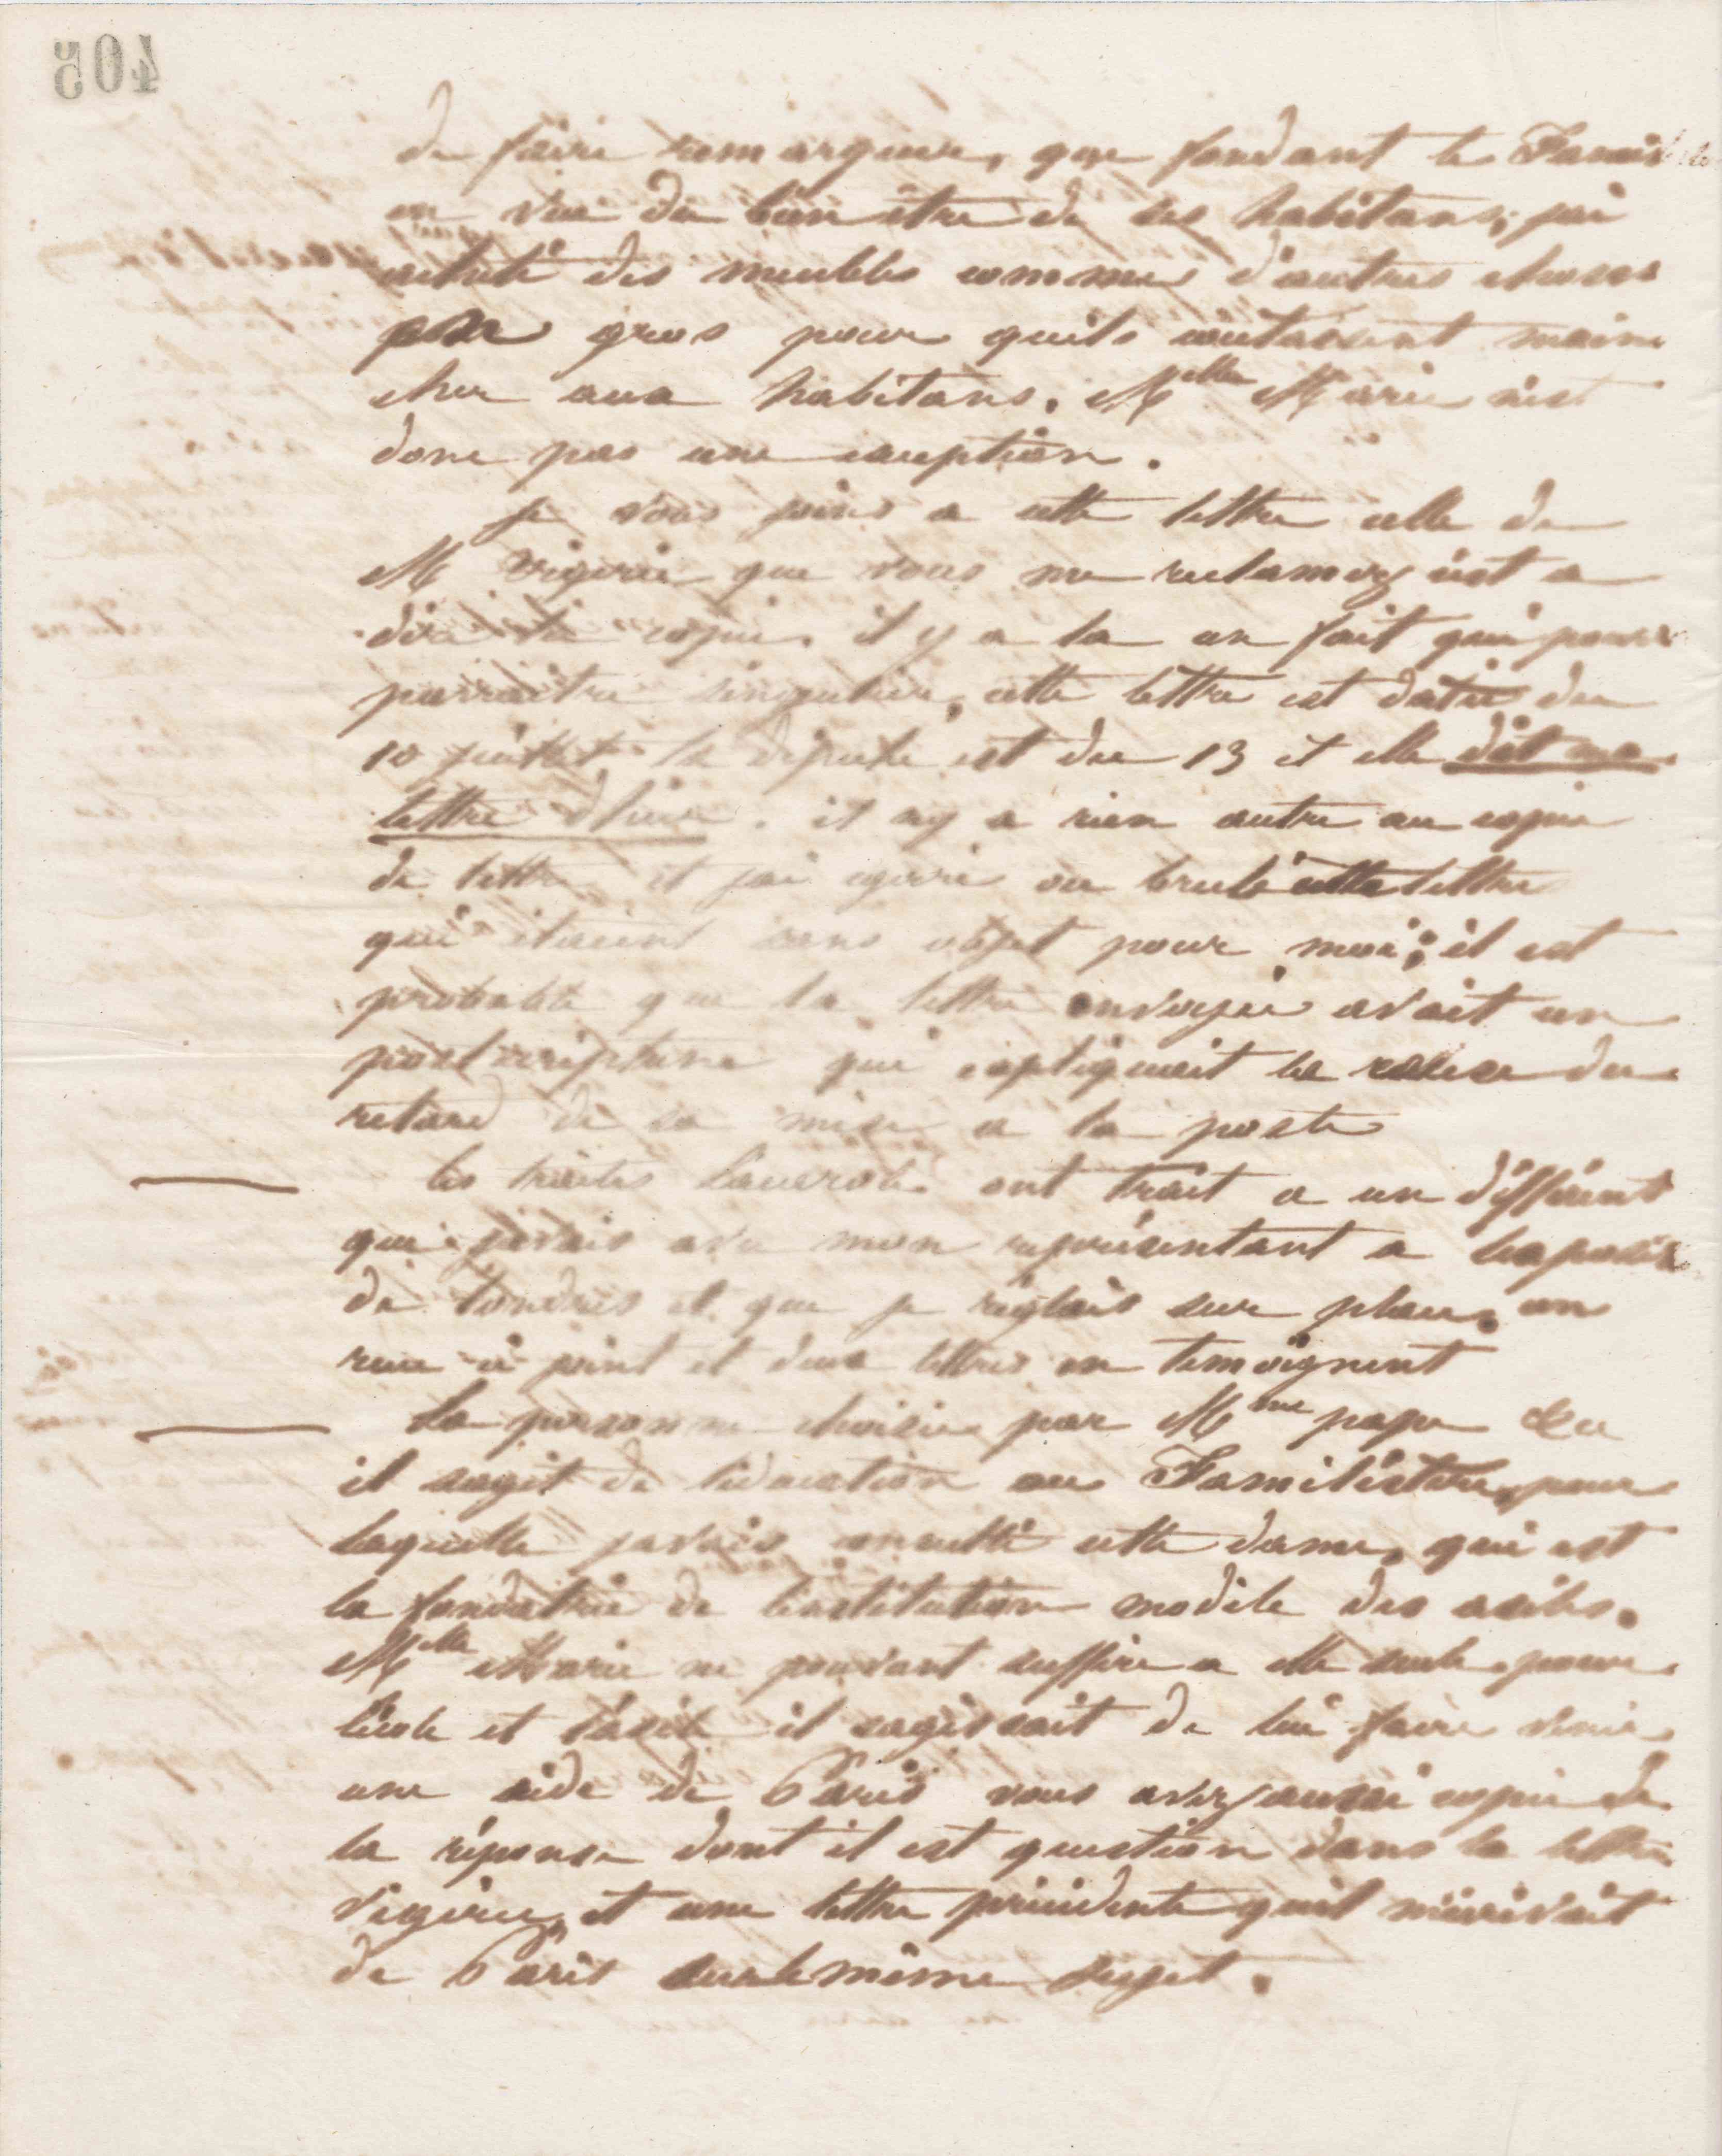 405
de faire remarquer, que fondant le Famil
en vue du bien être de ses habitans, jai
acheté des meubles comme d'autres choses
en gros pour quils coutassent moins
cher aux habitans. Melle Marie n'est
donc pas une exception.
Je vous joins a cette lettre celle de
M Vigerie que vous me reclamez c'est a
dire la copie. il y a la un fait qui peut
parraitre singulier, cette lettre est datée du
10 juillet la dépêche est du 13 et elle dit ma
lettre d'hier. il ny a rien autre au copie
de lettre et jai égaré ou brulé cette lettre
qui étaient sans objet pour moi; il est
probable que la lettre envoyée avait un
postscriptum qui expliquait la cause du
retard de sa mise a la poste
les traites ont trait a un différent
que javais avec mon représentant a lexposit
de Londres et que je réglais sur place, un
recu ci joint et deux lettres en temoignent
La personne choisie par Mme pape &a
il sagit de léducation au Familistère, pour
laquelle javais consulté cette dame, qui est
la fondatrice de linstitution modèle des asiles.
Melle Marie ne pouvant suffire a elle seule pour
lécole et lasile il sagissait de lui faire venir
une aide de Paris vous avez aussi copie de
la réponse dont il est question dans la lettre
Vigerie, et une lettre précédente quil m'écrivait
de Paris sur le même sujet.